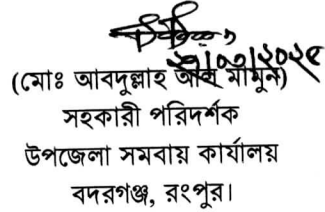 (মোঃ আবদুল্লাহ আল মামুন)
সহকারী পরিদর্শক
উপজেলা সমবায় কার্যালয়
বদরগঞ্জ, রংপুর।